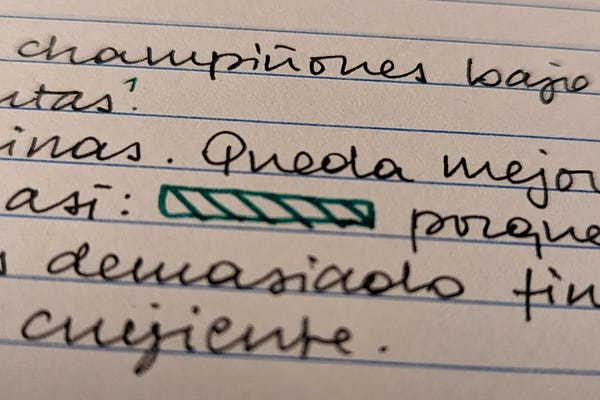 champiñones bajo
ntas¹.
inas. Queda mejor
así: porque
s demasiado fin
crujiente.